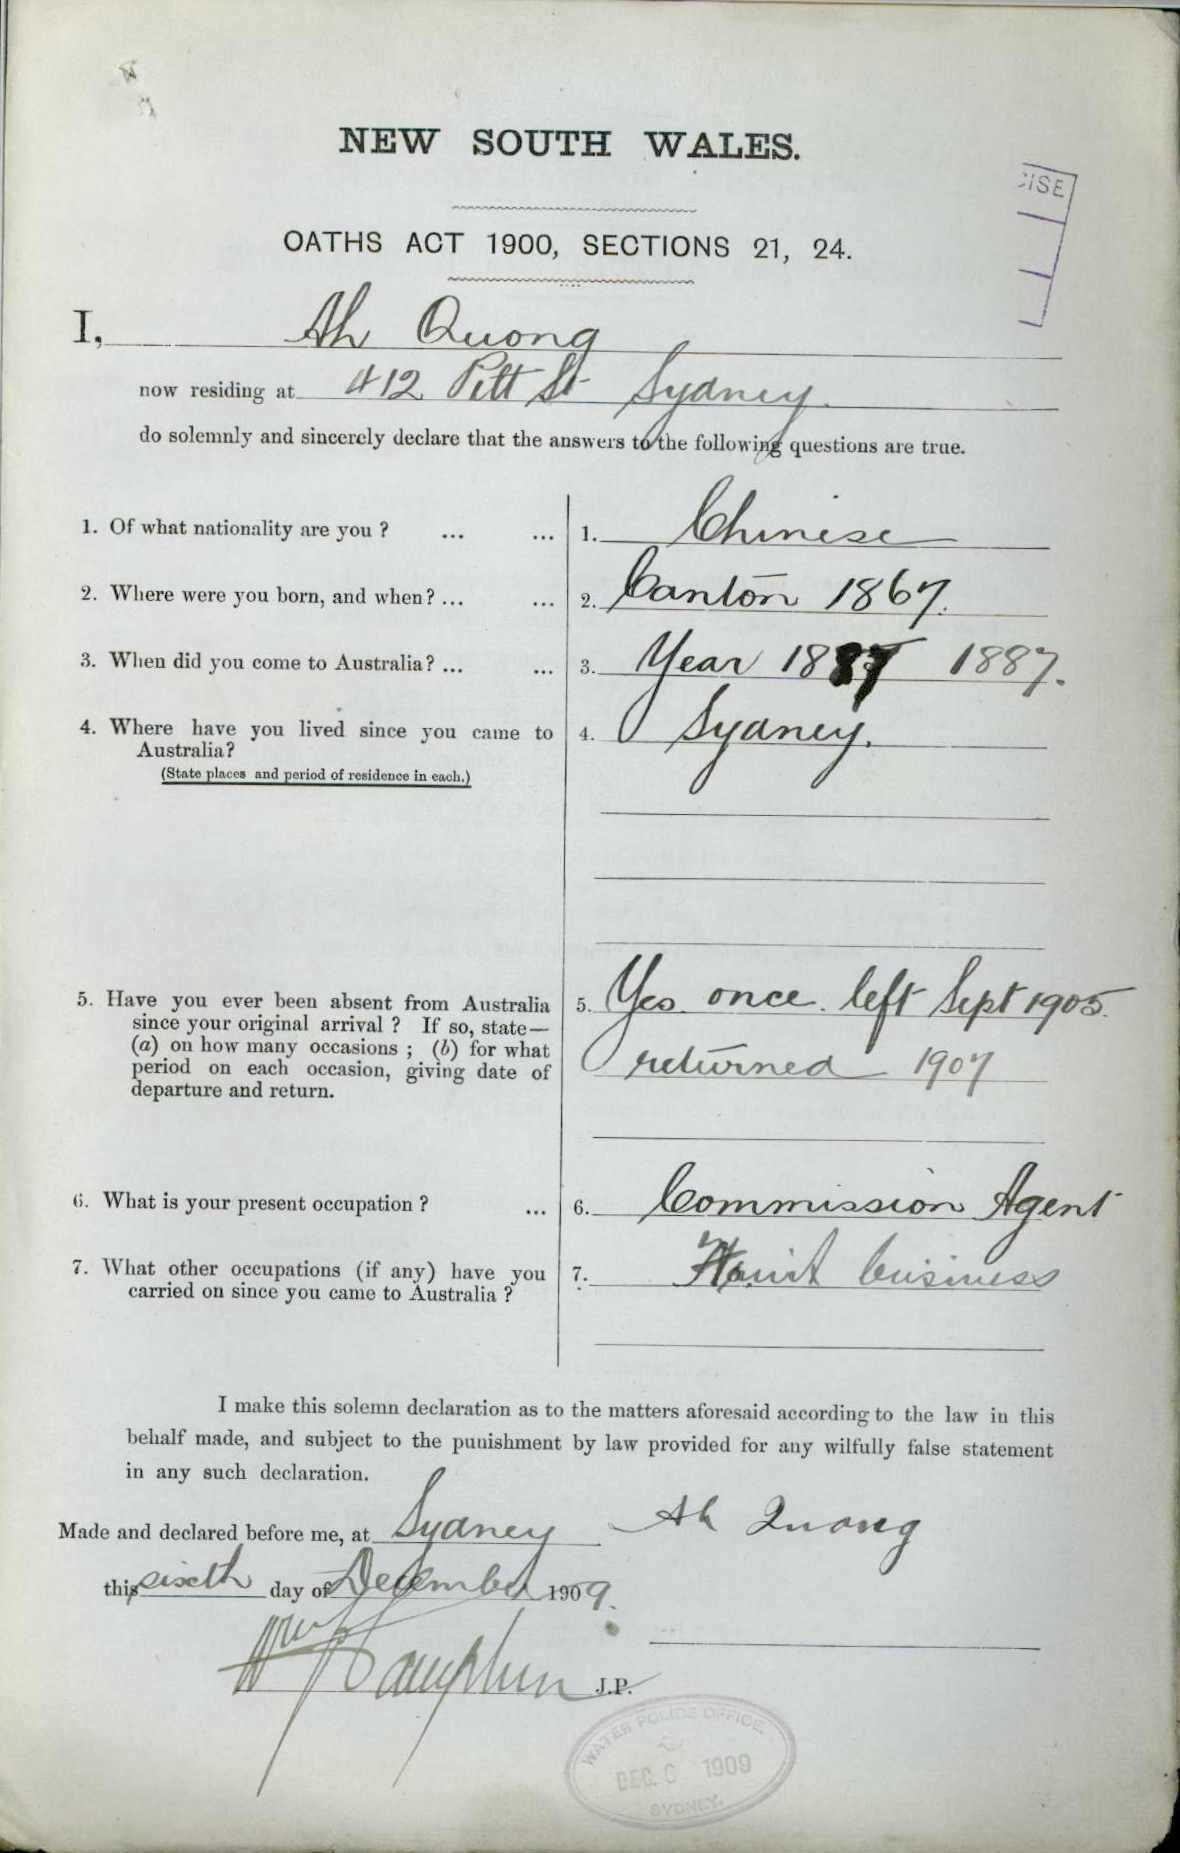 NEW SOUTH WALES.
CISE
OATHS ACT 1900, SECTIONS 21, 24.
I, Ah Quong
now residing at 412 Pitt St Sydney.
do solemnly and sincerely declare that the answers to the following questions are true.
1. Of what nationality are you ? ... ... 1. Chinese
2. Where were you born, and when? ... ... 2. Canton 1867.
3. When did you come to Australia? ... ... 3. Year 1887 1887.
4. Where have you lived since you came to 4. Sydney.
Australia?
(State places and period of residence in each.)
5. Have you ever been absent from Australia 5. Yes. once. left Sept 1905.
since your original arrival ? If so, state—
(a) on how many occasions ; (b) for what returned 1907
period on each occasion, giving date of
departure and return.
6. What is your present occupation ? ... 6. Commission Agent
7. What other occupations (if any) have you 7. business
carried on since you came to Australia ?
I make this solemn declaration as to the matters aforesaid according to the law in this
behalf made, and subject to the punishment by law provided for any wilfully false statement
in any such declaration.
Made and declared before me, at Sydney Ah Quong
this sixth day of December 1909.
J.P.
WATER POLICE OFFICE.
DEC. 6 1909
SYDNEY.